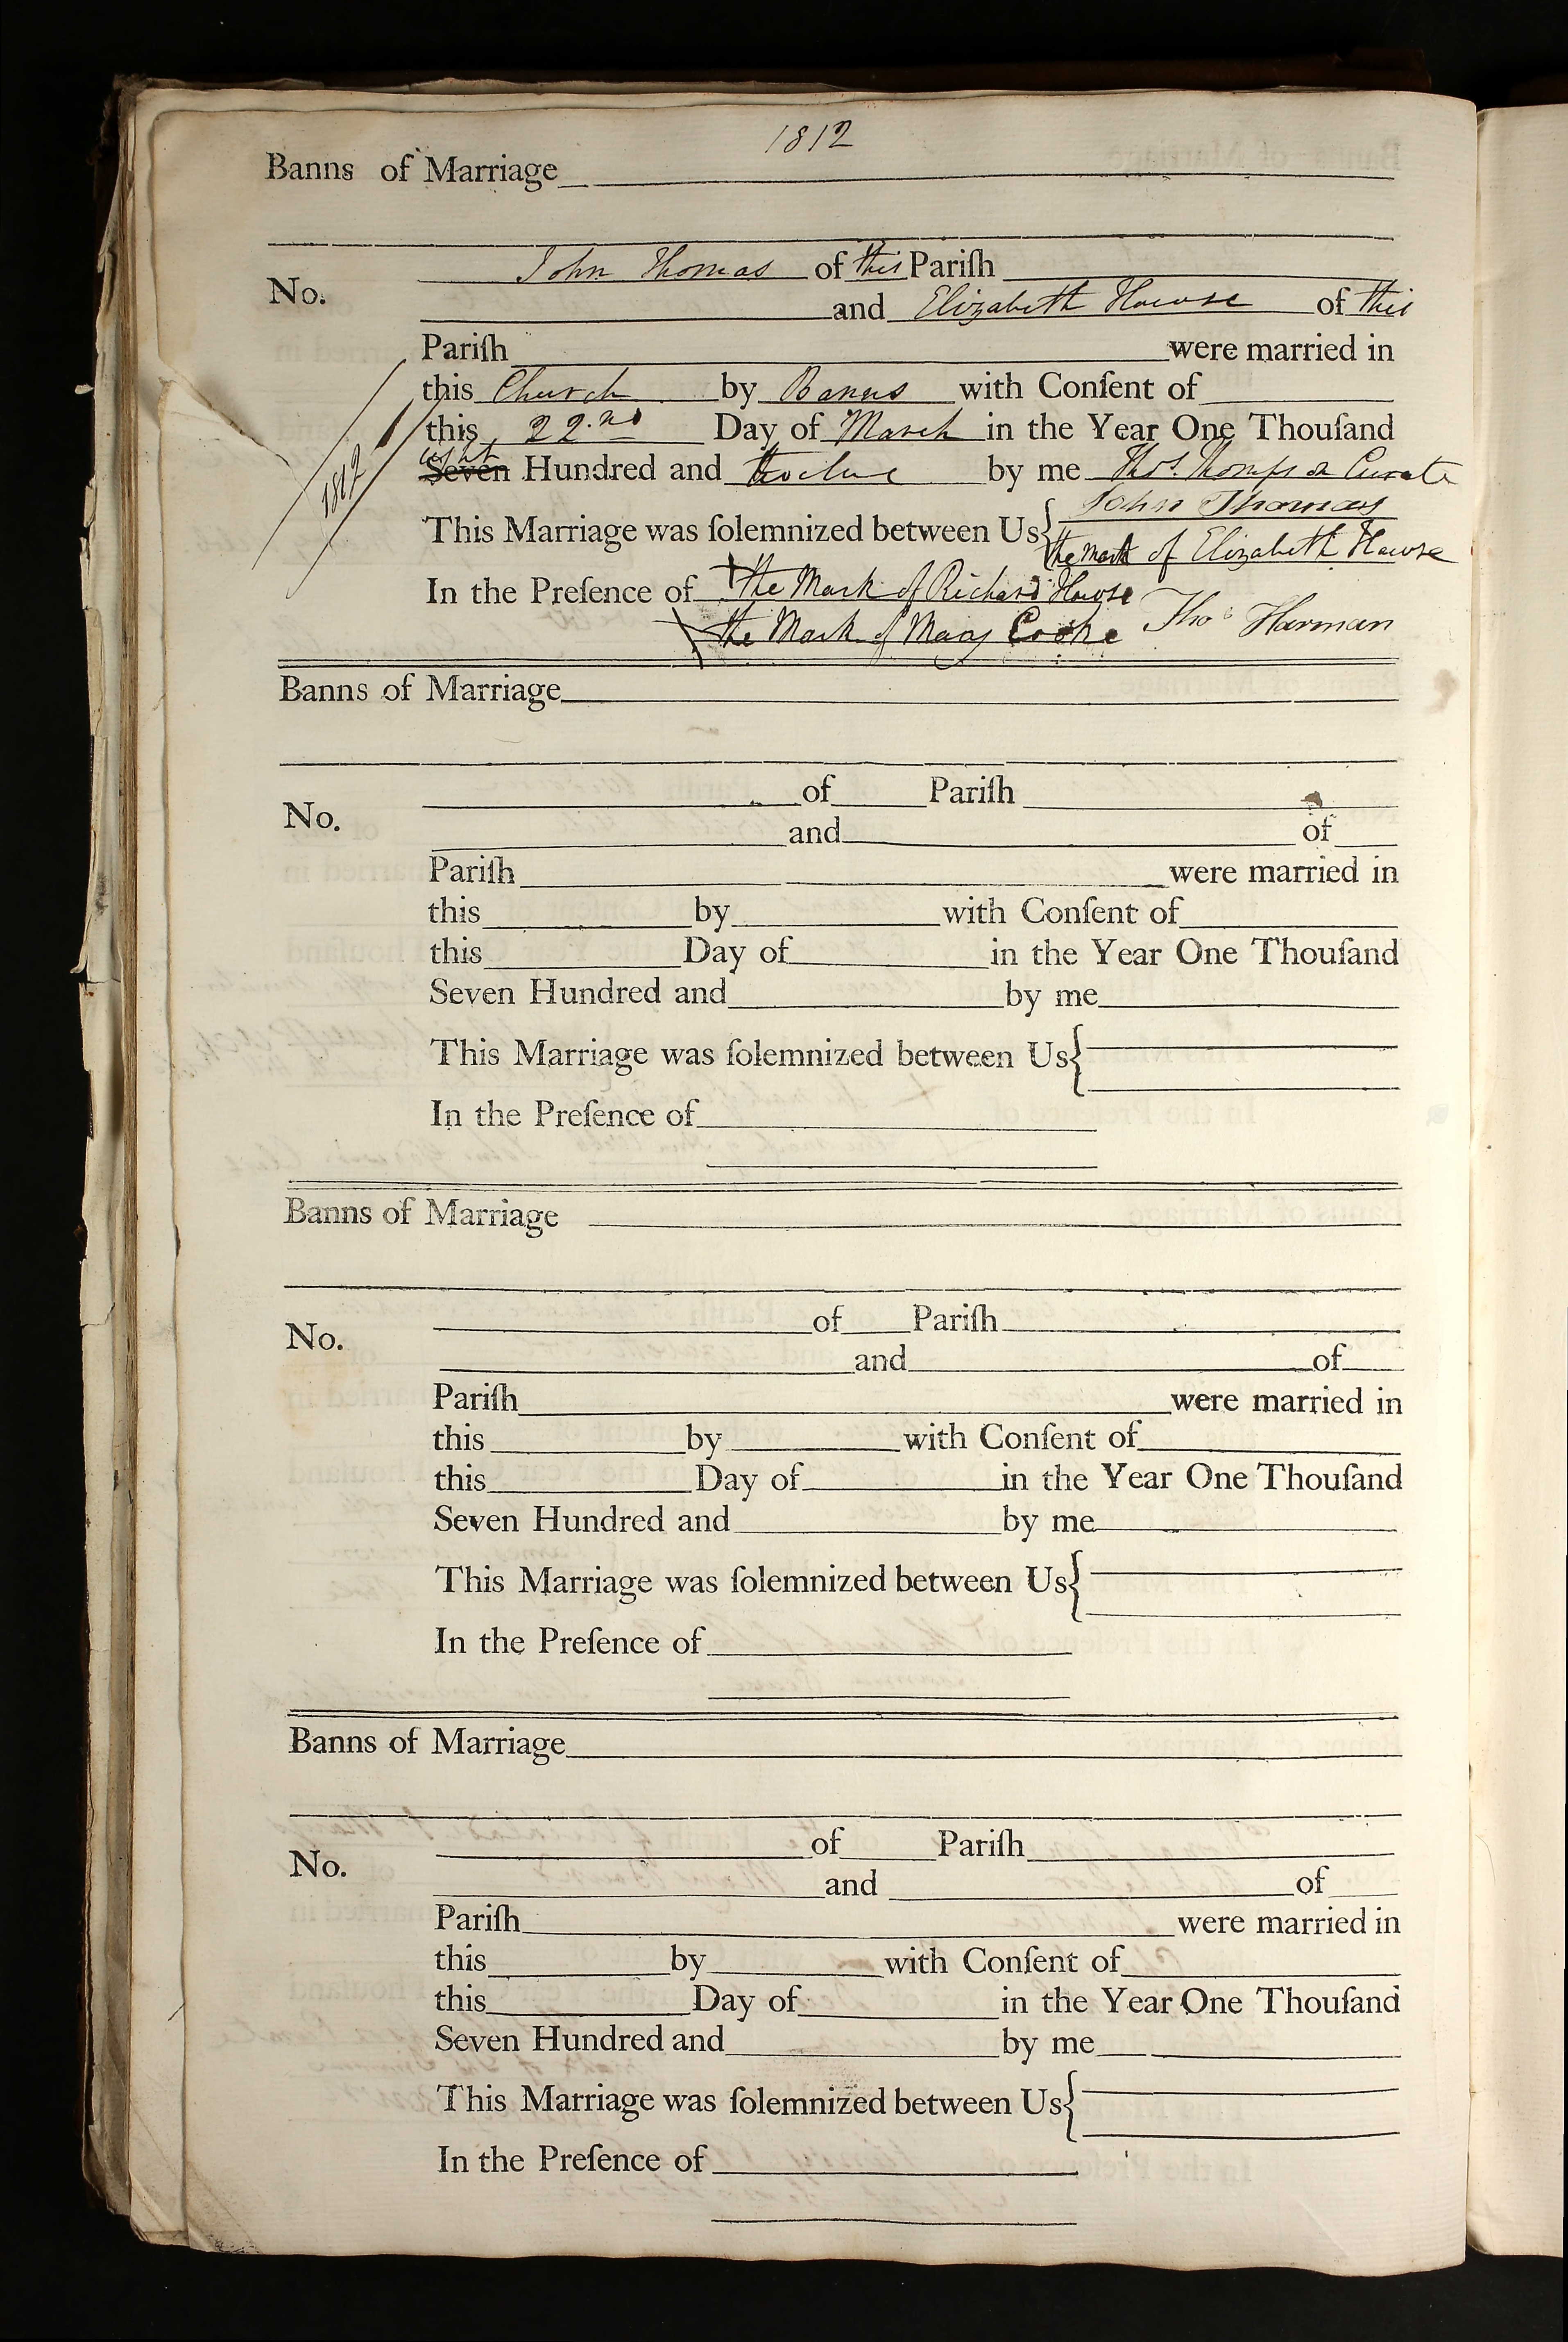 1812
Banns of Marriage
John Thomas of this Pariſh
No.
and Elizabeth Howse of this
Pariſh were married in
this Church by Banns with Conſent of
this 22.nd Day of March in the Year One Thouſand
eight
Seven Hundred and twelve by me Thos. Thompson Curate
1812
John Thomas
This Marriage was ſolemnized between Us
the mark of Elizabeth Howse
In the Preſence of the Mark of Richard Howse
the Mark of Mary Cooke Thos Harman
Banns of Marriage
of Pariſh
No.
and of
Pariſh were married in
this by with Conſent of
this Day of in the Year One Thouſand
Seven Hundred and by me
This Marriage was ſolemnized between Us
In the Preſence of
Banns of Marriage
of Pariſh
No.
and of
Pariſh were married in
this by with Conſent of
this Day of in the Year One Thouſand
Seven Hundred and by me
This Marriage was ſolemnized between Us
In the Preſence of
Banns of Marriage
of Pariſh
No.
and of
Pariſh were married in
this by with Conſent of
this Day of in the Year One Thouſand
Seven Hundred and by me
This Marriage was ſolemnized between Us
In the Preſence of